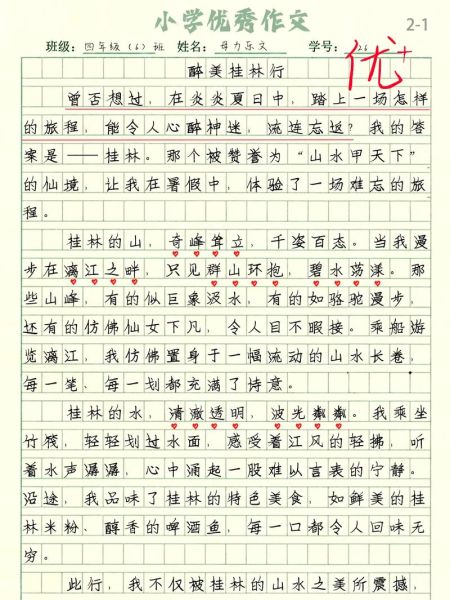 小学优秀作文
2-1
班级：四年级（6）班 姓名：母力乐文 学号：26
优+
醉美桂林行
曾否想过，在炎炎夏日中，踏上一场怎样
的旅程，能令人心醉神迷，流连忘返？我的答
案是——桂林。那个被赞誉为“山水甲天下”
的仙境，让我在暑假中，体验了一场难忘的旅
程。
桂林的山，奇峰耸立，千姿百态。当我漫
步在漓江之畔，只见群山环抱，碧水荡漾。那
些山峰，有的似巨象汲水，有的如骆驼漫步，
还有的仿佛仙女下凡，令人目不暇接。乘船游
览漓江，我仿佛置身于一幅流动的山水长卷，
每一笔、每一划都充满了诗意。
桂林的水，清澈透明，波光粼粼。我乘坐
竹筏，轻轻划过水面，感受着江风的轻拂，听
着水声潺潺，心中涌起一股难以言表的宁静。
沿途，我品味了桂林的特色美食，如鲜美的桂
林米粉、醇香的啤酒鱼，每一口都令人回味无
穷。
此行，我不仅被桂林的山水之美所震撼，